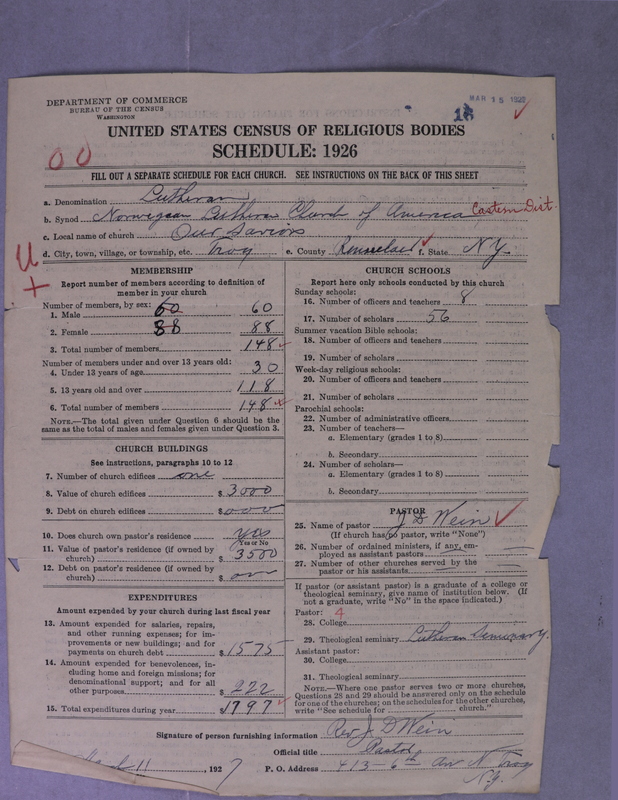 DEPARTMENT OF COMMERCE
BUREAU OF THE CENSUS
WASHINGTON
MAR 15 1927
16
UNITED STATES CENSUS OF RELIGIOUS BODIES
SCHEDULE: 1926
FILL OUT A SEPARATE SCHEDULE FOR EACH CHURCH. SEE INSTRUCTIONS ON THE BACK OF THIS SHEET
a. Denomination Lutheran
b. Synod Norwegian Lutheran Church of America Eastern Dist.
c. Local name of church Our Saviors
d. City, town, village, or township, etc. Troy e. County Rensselaer f. State N.Y.
MEMBERSHIP
Report number of members according to definition of
member in your church
Number of members, by sex:
1. Male 60 60
2. Female 88 88
3. Total number of members 148
Number of members under and over 13 years old:
4. Under 13 years of age 30
5. 13 years old and over 118
6. Total number of members 148
NOTE.—The total given under Question 6 should be
same as the total of males and females given under Question 3.
CHURCH BUILDINGS
See instructions, paragraphs 10 to 12
7. Number of church edifices one
8. Value of church edifices $ 3000
9. Debt on church edifices $ 000
10. Does church own pastor's residence yes
Yes or No
11. Value of pastor's residence (if owned by
church) $ 3500
12. Debt on pastor's residence (if owned by
church) $
EXPENDITURES
Amount expended by your church during last fiscal year
13. Amount expended for salaries, repairs,
and other running expenses; for im-
provements or new buildings; and for
payments on church debt $ 1575
14. Amount expended for benevolences, in-
cluding home and foreign missions; for
denominational support; and for all
other purposes $ 222
15. Total expenditures during year $ 1797
CHURCH SCHOOLS
Report here only schools conducted by this church
Sunday schools:
16. Number of officers and teachers 8
17. Number of scholars 56
Summer vacation Bible schools:
18. Number of officers and teachers
19. Number of scholars
Week-day religious schools:
20. Number of officers and teachers
21. Number of scholars
Parochial schools:
22. Number of administrative officers
23. Number of teachers—
a. Elementary (grades 1 to 8)
b. Secondary
24. Number of scholars—
a. Elementary (grades 1 to 8)
b. Secondary
PASTOR
25. Name of pastor J D Wein
(If church has no pastor, write "None")
26. Number of ordained ministers, if any, em-
ployed as assistant pastors
27. Number of other churches served by the
pastor or his assistants
If pastor (or assistant pastor) is a graduate of a college or
theological seminary, give name of institution below. (If
not a graduate, write "No" in the space indicated.)
Pastor: 4
28. College
29. Theological seminary Lutheran Seminary.
Assistant pastor:
30. College
31. Theological seminary
NOTE.—Where one pastor serves two or more churches,
Questions 28 and 29 should be answered only on the schedule
for one of the churches; on the schedules for the other churches,
write "See schedule for church."
Signature of person furnishing information Rev. J. D Wein
Official title Pastor
11, 1927 P. O. Address 413-6th Av N Troy
N.Y.